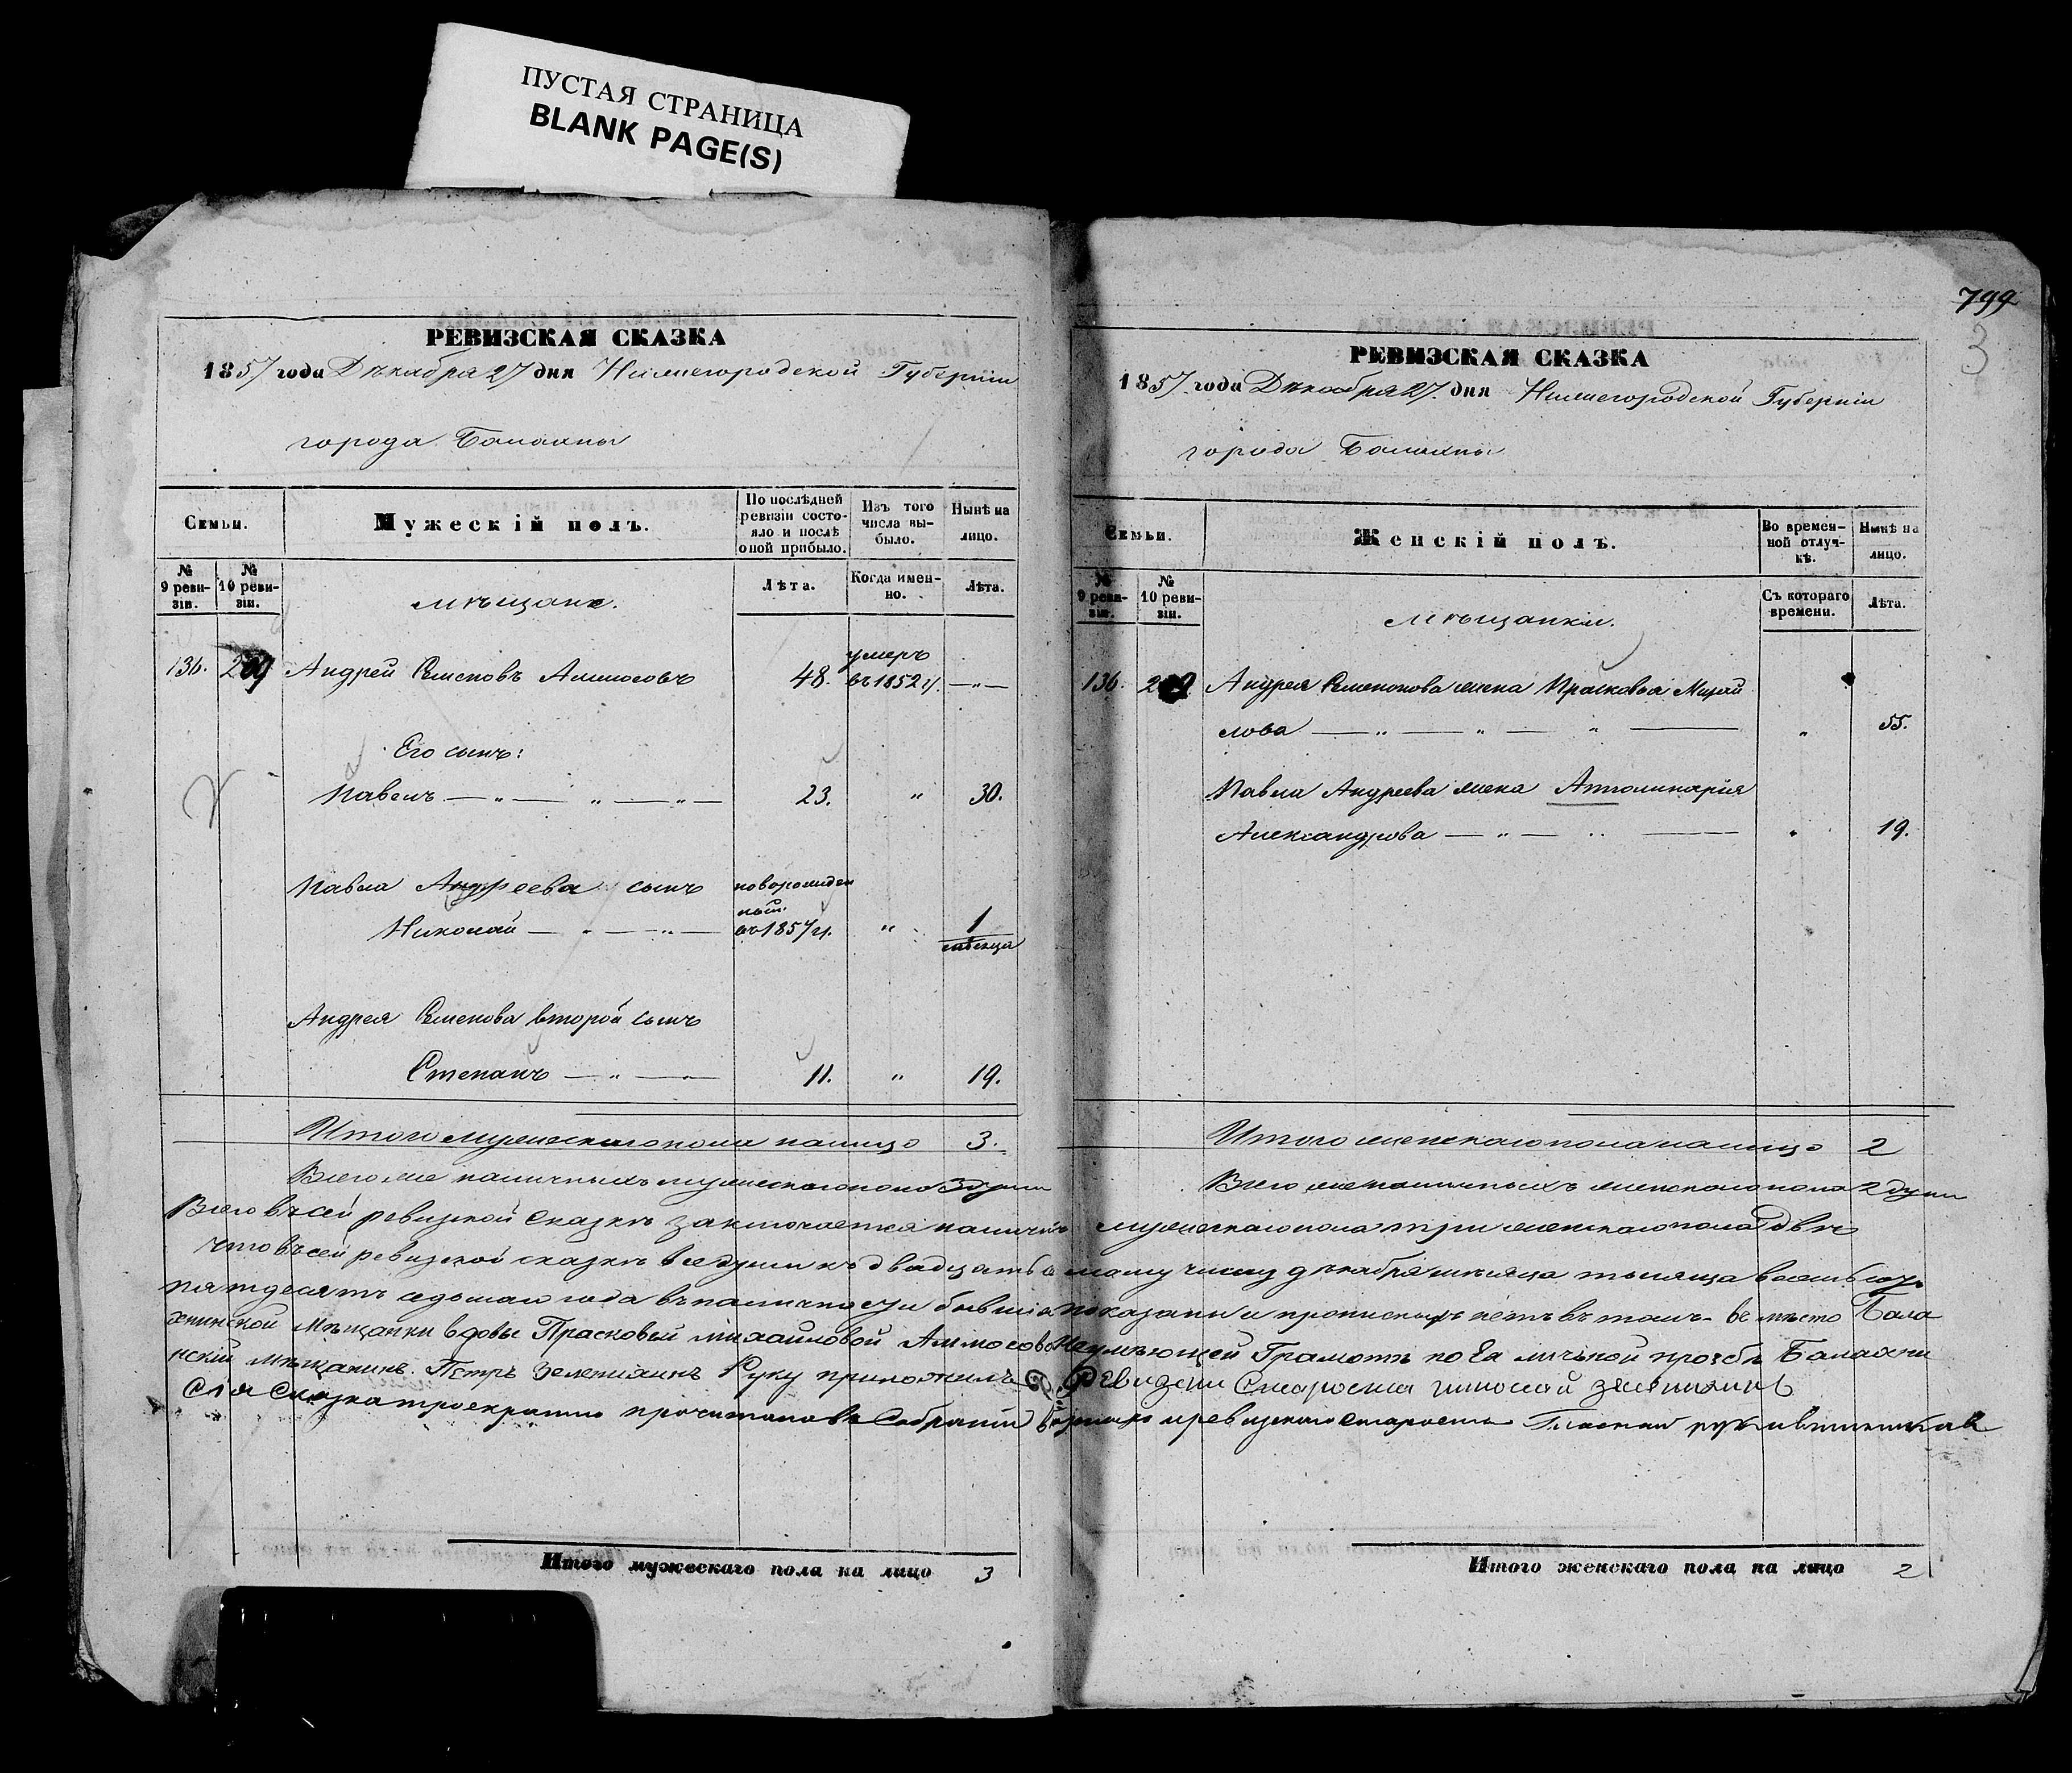 ПУСТАЯ СТРАНИЦА
BLANK PAGE(S)
РЕВИЗСКАЯ СКАЗКА
1857 года Декабря 27 дня Нижегородской Губерніи
города Балахны
Семьи.
Мужескій полъ.
По послѣдней ревизіи состояло и послѣ оной прибыло.
Изъ того числа выбыло.
Нынѣ на лицо.
№ 9 ревизіи.
№ 10 ревизіи.
мѣщане.
Лѣта.
Когда именно.
Лѣта.
136. 209 Андрей Семеновъ Аммосовъ 48. умеръ въ 1852 г. — „ —
Его сынъ:
Павелъ — „ — „ — „ — 23. „ 30.
Павла Андреева сынъ новорожден
ный
Николай — „ — „ — въ 1857 г. „ 1
мѣсяца
Андрея Семенова второй сынъ
Степанъ — „ — „ — 11. „ 19.
Итого мужескаго пола на лицо 3.
Всего же наличныхъ мужескаго пола 3 души
РЕВИЗСКАЯ СКАЗКА
799
3
1857 года Декабря 27 дня Нижегородской Губерніи
города Балахны
Семьи.
Женскій полъ.
Во временной отлучкѣ.
Нынѣ на лицо.
№ 9 ревизіи.
№ 10 ревизіи.
мѣщанки.
Съ котораго времени.
Лѣта.
136. 209 Андрея Семенова жена Прасковья Михай
лова — „ — „ — „ — „ 55.
Павла Андреева жена Апполинария
Александрова — „ — „ — „ 19.
Итого женскаго пола на лицо 2
Всего же наличныхъ женскаго пола 2 души
Всего въ сей ревизской сказкѣ заключается наличныхъ мужескаго пола три женскаго пола двѣ
что въ сей ревизской сказкѣ все души къ двадцать седьмому числу декабря мѣсяца тысяща восемь сотъ
пятдесятъ седьмаго года въ наличности бывшія показаны и прописныхъ нѣтъ въ томъ вмѣсто Бала
хнинской Мѣщанки вдовы Прасковьи Михайловой Аммосовой Неумѣющей Грамотѣ по Ея личной прозбѣ Балахни
нскій мѣщанинъ Петръ Руку приложилъ Ревизски Староста
Сія Сказка троекратно прочитана въ Собраніи
Итого мужескаго пола на лицо 3
Итого женскаго пола на лицо 2